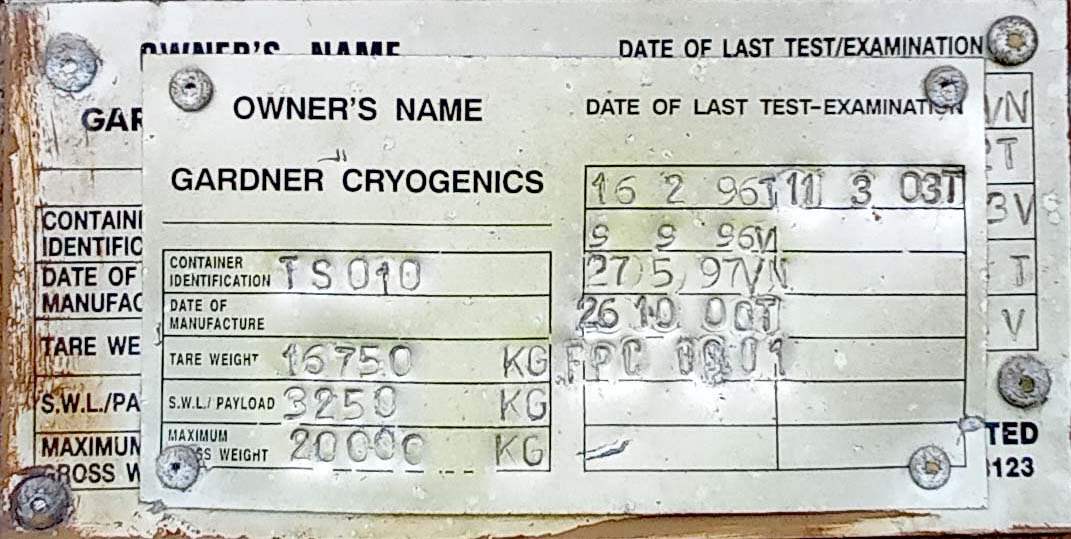 OWNER'S NAME
DATE OF LAST TEST/EXAMINATION
OWNER'S NAME
DATE OF LAST TEST-EXAMINATION
GAR
GARDNER CRYOGENICS
16 2 96T 11 3 03T
VN
T
9 9 96V
3V
27 5 97VN
T
26 10 00T
V
FPC
01
CONTAINER
IDENTIFICATION TS010
DATE OF
MANUFACTURE
TARE WEIGHT 16750 KG
S.W.L./ PAYLOAD 3250 KG
MAXIMUM
SS WEIGHT 20000 KG
CONTAINE
IDENTIFIC
DATE OF
MANUFAC
TARE WE
S.W.L./PA
MAXIMUM
GROSS W
TED
123